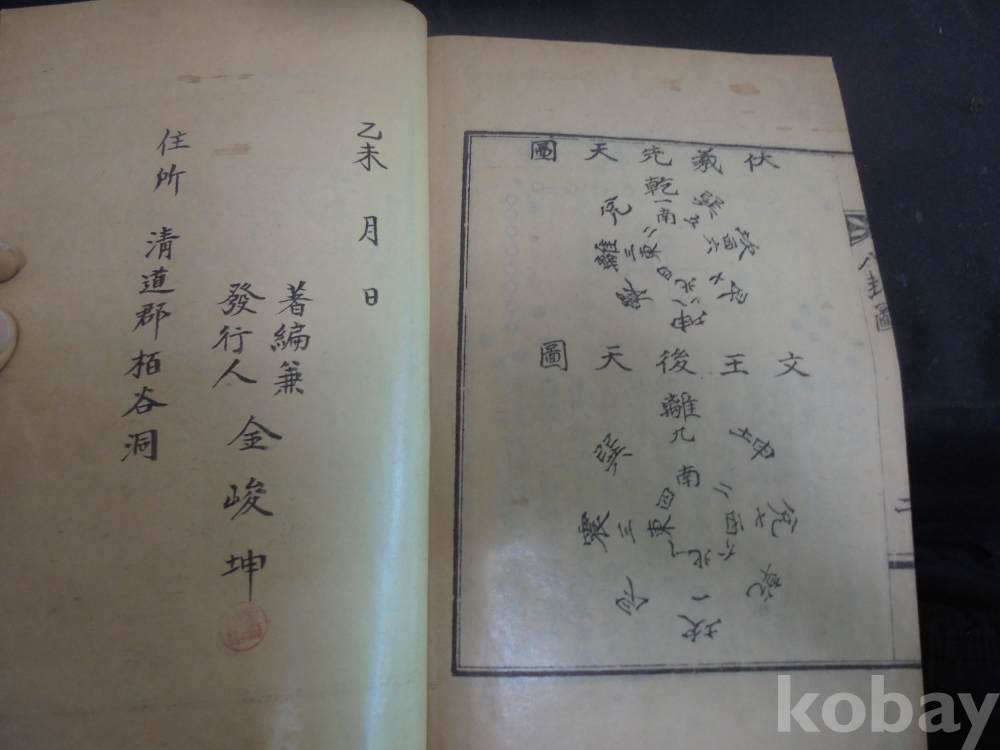 乙未 月 日
著編兼
發行人 金峻坤
住所 清道郡栢谷洞
伏羲先天圖
乾
一
南
兌
二
巽
五
離
三
東
坎
六
西
震
四
艮
七
北
八
坤
文王後天圖
離
九
南
巽
四
坤
二
震
三
東
兌
七
西
艮
八
乾
六
北
一
坎
八卦圖
二
kobay